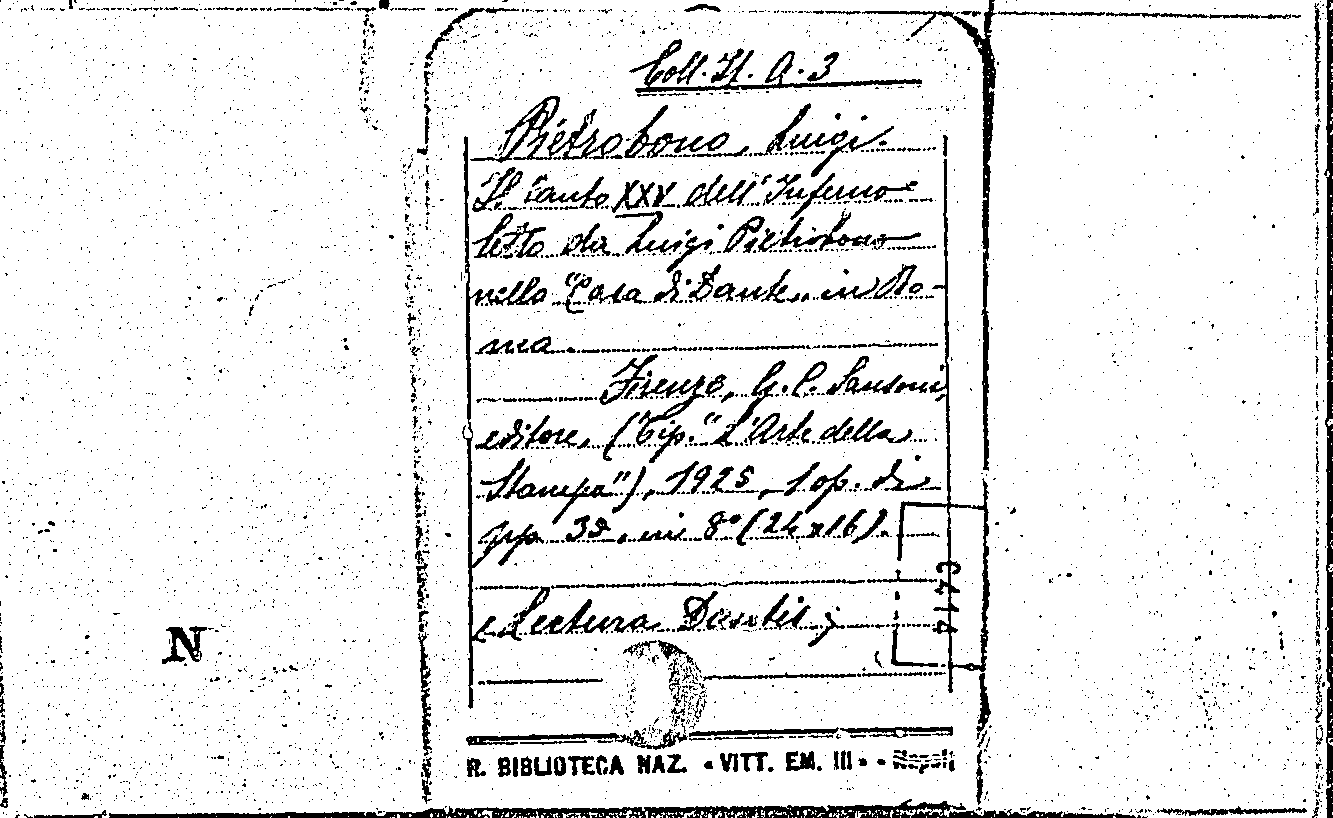 Coll. It. A. 3
Pietrobono, Luigi.
Il Canto XXV dell'Inferno
letto da Luigi Pietrobono
nella "Casa di Dante" in Ro-
ma.
Firenze, G. C. Sansoni,
editore, (Tip. "L'Arte della
Stampa"), 1925, 1 op. di
pp. in 8° (24x16).
(Lectura Dantis)
C4114
N
R. BIBLIOTECA NAZ. « VITT. EM. III » - Napoli